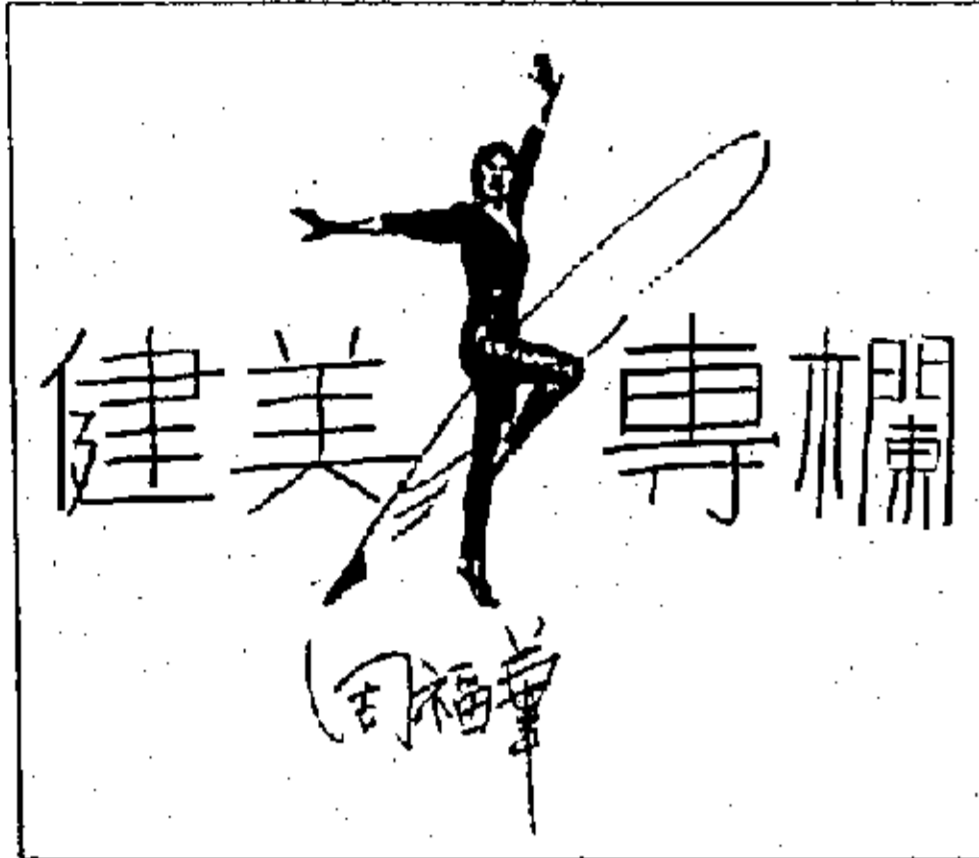 健美專欄
周福